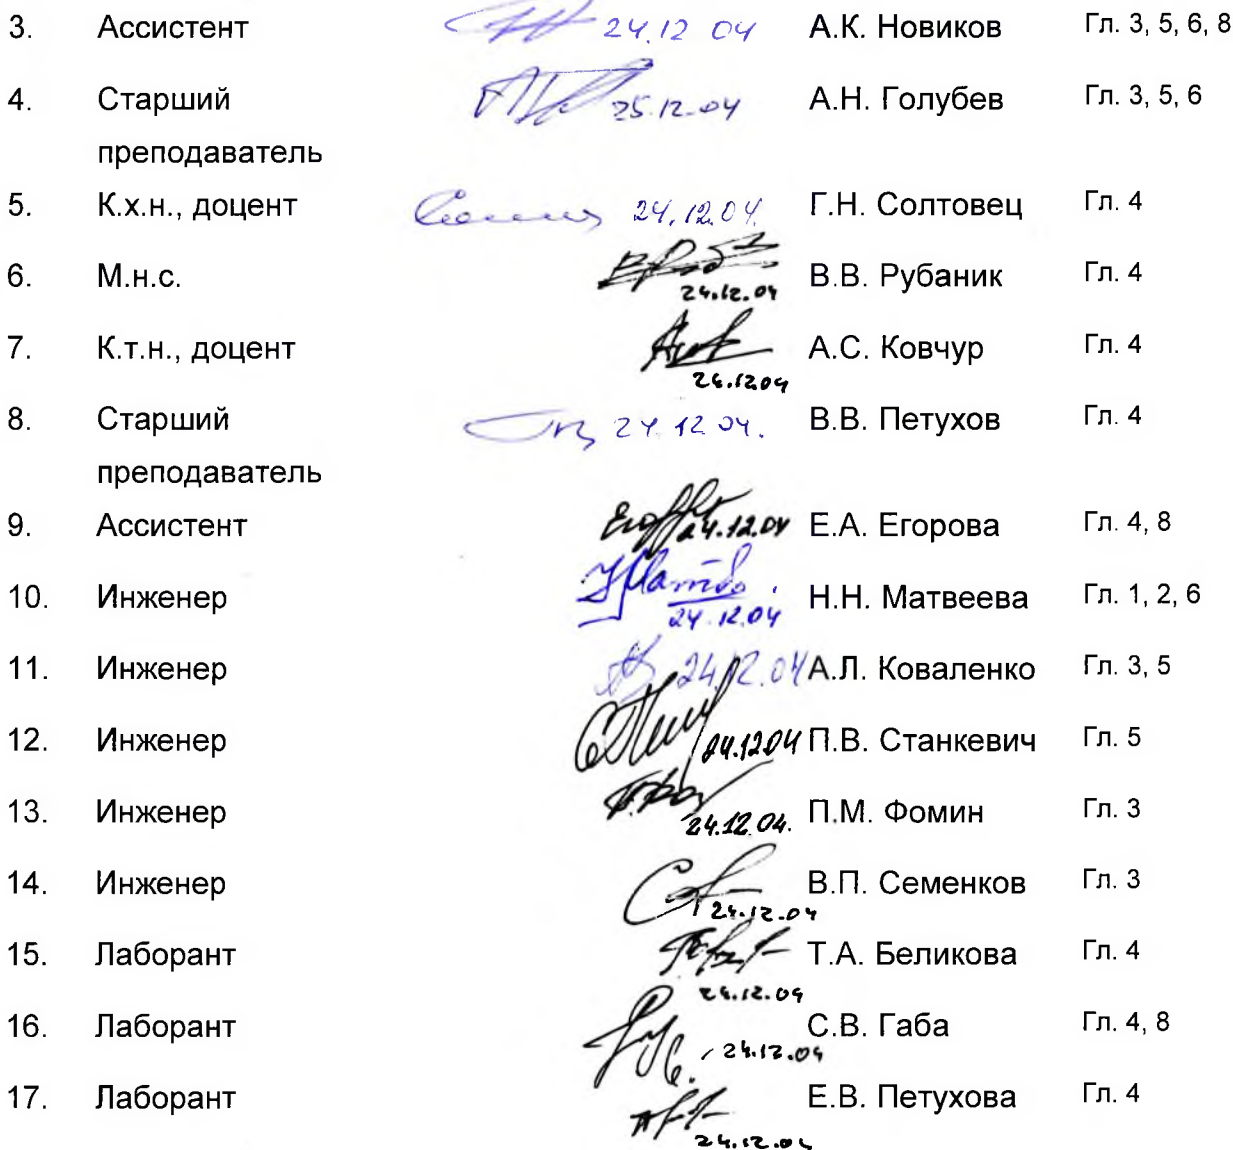 3. Ассистент 24.12 04 А.К. Новиков Гл. 3, 5, 6, 8
4. Старший 25.12.04 А.Н. Голубев Гл. 3, 5, 6
преподаватель
5. К.х.н., доцент 24.12.04. Г.Н. Солтовец Гл. 4
6. М.н.с. 24.12.04 В.В. Рубаник Гл. 4
7. К.т.н., доцент 24.12.04 А.С. Ковчур Гл. 4
8. Старший 24.12.04. В.В. Петухов Гл. 4
преподаватель
9. Ассистент 24.12.04 Е.А. Егорова Гл. 4, 8
10. Инженер 24.12.04 Н.Н. Матвеева Гл. 1, 2, 6
11. Инженер 24.12.04 А.Л. Коваленко Гл. 3, 5
12. Инженер 24.12.04 П.В. Станкевич Гл. 5
13. Инженер 24.12.04. П.М. Фомин Гл. 3
14. Инженер 24.12.04 В.П. Семенков Гл. 3
15. Лаборант 24.12.04 Т.А. Беликова Гл. 4
16. Лаборант 24.12.04 С.В. Габа Гл. 4, 8
17. Лаборант 24.12.04 Е.В. Петухова Гл. 4